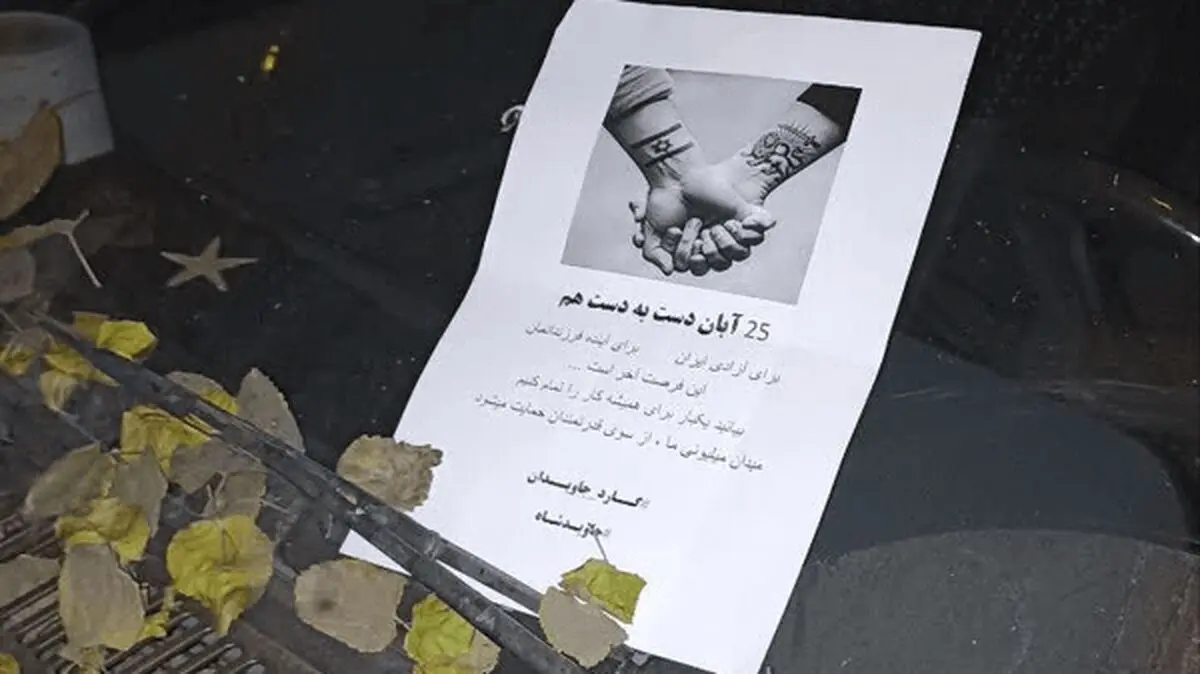 25 آبان دست به دست هم
برای آزادی ایران    برای آینده فرزندانمان
این فرصت آخر است ...
بیائید یکبار برای همیشه کار را تمام کنیم
میدان میلیونی ما ، از سوی قدرتمندان حمایت میشود
#گارد_جاویدان
#جاویدشاه